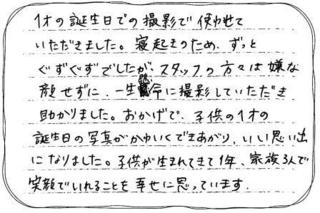 1才の誕生日での撮影で使わせて
いただきました。寝起きのため、ずっと
ぐずぐずでしたが、スタッフの方々は嫌な
顔せずに、一生命に撮影していただき
助かりました。おかげで、子供の1才の
誕生日の写真がかわいくできあがり、いい思い出
になりました。子供が生まれてきて1年、家族3人で
笑顔でいれることを幸せに思っています。